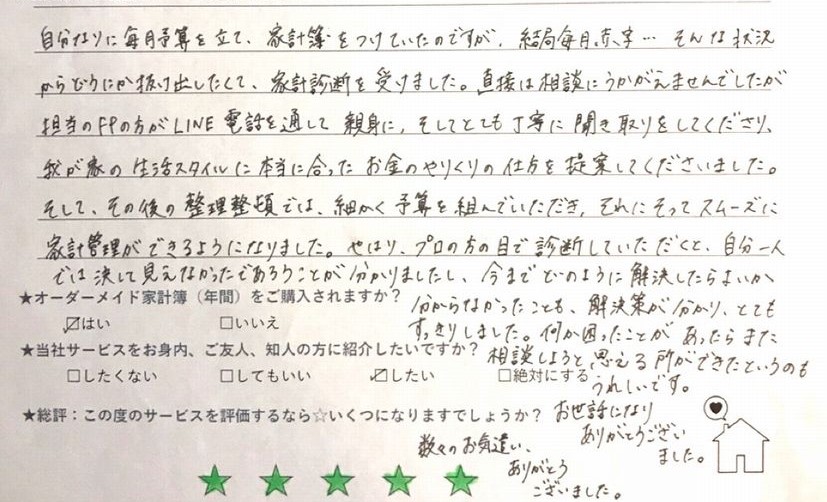 自分なりに毎月予算を立て、家計簿をつけていたのですが、結局毎月赤字… そんな状況
からどうにか抜け出したくて、家計診断を受けました。直接は相談にうかがえませんでしたが
担当のFPの方がLINE電話を通して親身に、そしてとても丁寧に聞き取りをしてくださり、
我が家の生活スタイルに本当に合ったお金のやりくりの仕方を提案してくださいました。
そして、その後の整理整頓では、細かく予算を組んでいただき、それにそってスムーズに
家計管理ができるようになりました。やはり、プロの方の目で診断していただくと、自分一人
では決して見えなかったであろうことが分かりましたし、今までどのように解決したらよいか
分からなかったことも、解決策が分かり、とても
すっきりしました。何か困ったことがあったらまた
相談しようと思える所ができたというのも
うれしいです。
お世話になり
ありがとうござい
ました。
★オーダーメイド家計簿（年間）をご購入されますか？
☑はい □いいえ
★当社サービスをお身内、ご友人、知人の方に紹介したいですか？
□したくない □してもいい ☑したい □絶対にする
★総評：この度のサービスを評価するなら☆いくつになりますでしょうか？
数々のお気遣い、
ありがとう
ございました。
★ ★ ★ ★ ★